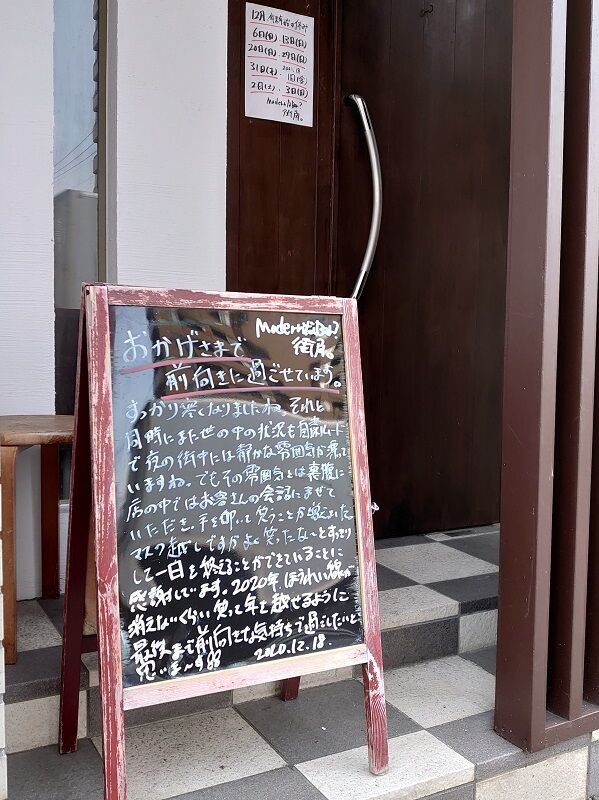 12月
6日(日) 13日(日)
20日(日) 27日(日)
31日(木) 1日(金)
2日(土) 3日(日)
街角。
街角。
おかげさまで
前向きに過ごせています。
すっかり寒くなりましたね。それと
同時にまた世の中の状況も自粛ムード
で夜の街中には静かな雰囲気が漂って
いますね。でもその雰囲気とは裏腹に
店の中ではお客さんの会話にまぜて
いただき、手を叩いて笑うことが増えました
マスク越しですがよく笑ったな〜とすっきり
して一日を終えることができていることに
感謝しています。2020年、ほうれい線が
消えないくらい笑って年を越せるように
最後まで前向きな気持ちで過ごしたいと
思いま〜す
2020.12.18.